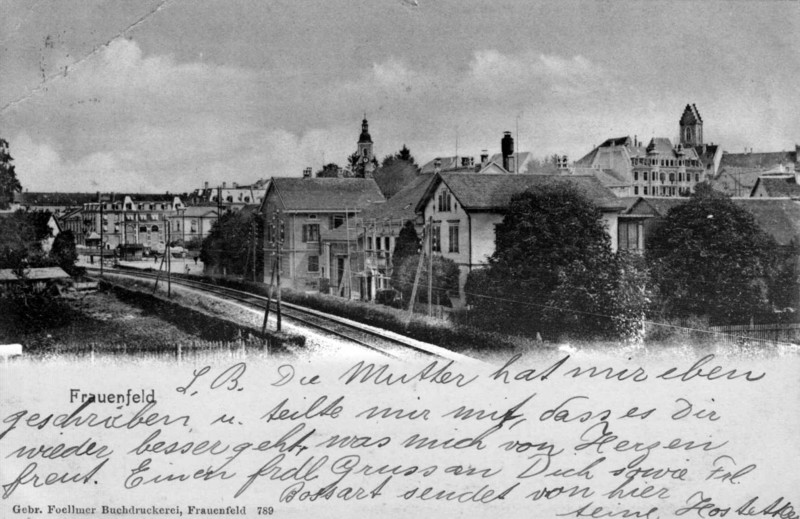 Frauenfeld
L. B. Die Mutter hat mir eben
geschrieben, u. teilte mir mit, dass es Dir
wieder besser geht, was mich von Herzen
freut. Einen frdl. Gruss an Dich sowie Frl.
Bossart sendet von hier
seine
Gebr. Foellmer Buchdruckerei, Frauenfeld 789